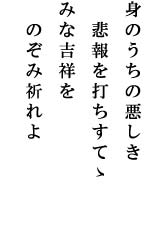 身のうちの悪しき
悲報を打ちすてゝ
みな吉祥を
のぞみ祈れよ